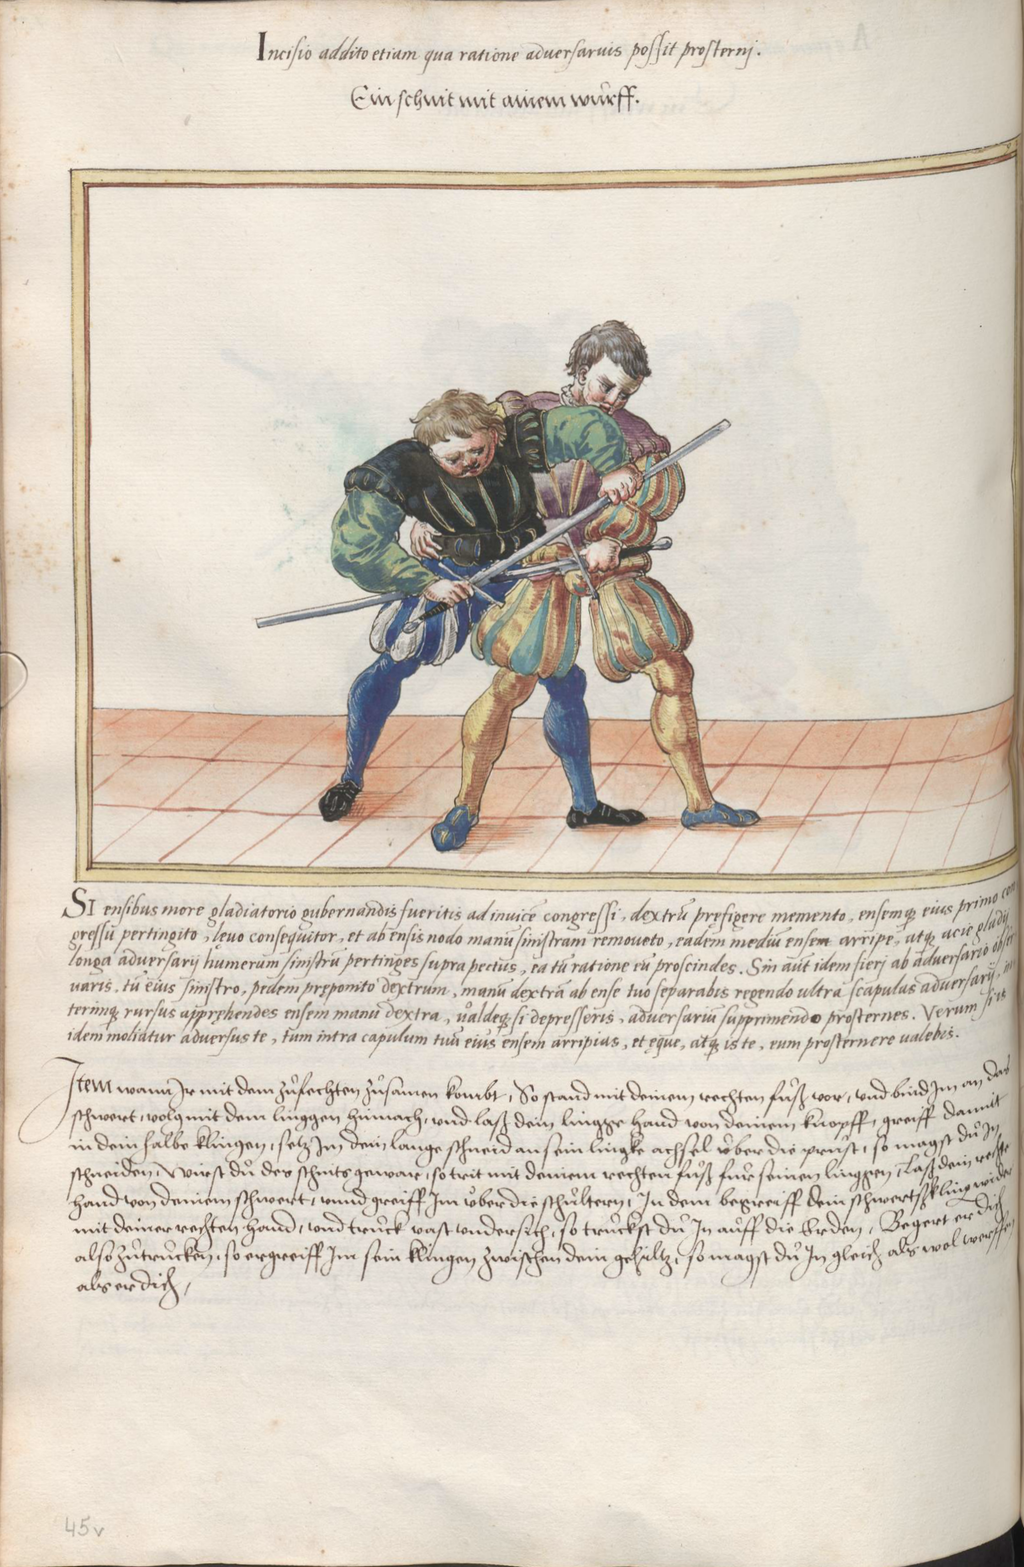 Incisio addito etiam qua ratione aduersarius possit prosternj.
Ein schnit mit ainem wurff.
SI ensibus more gladiatorio gubernandis fueritis ad inuicē congressi, dextrū prefigere memento, ensemq; eius primo con
gressu pertingito, leuo consequitor, et ab ensis nodo manū sinistram remoueto, eadem mediū ensem arripe, atq; acie gladij
longa aduersarij humerum sinistrū pertinges supra pectus, ea tū ratione eū proscindes. Sin aūt idem fierj ab aduersario obser
uaris, tū eius sinistro, pedem preponito dextrum, manū dextrā ab ense tuo separabis regendo ultra scapulas aduersarij, in
terimq; rursus apprehendes ensem manu dextra, ualdeq; si depresseris, aduersariū supprimendo prosternes. Verum si is
idem moliatur aduersus te, tum intra capulum tuū eius ensem arripias, et eque, atq; is te, eum prosternere ualebis.
Item wann Ir mit dem zůfechten zůsamen kombt, So stand mit deinem rechten fůß vor, vnd bind Im an das
schwert, volg mit dem linggen hinnach, vnd laß dein lingge hand von deinem knopff, greiff damit
in dein halbe klingen, setz Im dein lange schneid an sein lingke achsel vber die prust, so magst du In
schneiden, Wirst du des schnits gewar, so trit mit deinem rechten fůß fur seinen linggen, Laß dein rechte
hand von deinem schwert, vnnd greiff Im vber die schultern, In dem begreiff dein schwertsklingen wider
mit deiner rechten hand, vnd truck vast vndersich, so truckst du In auff die Erden, Begert er dich
also zůtrucken, so ergreiff Im sein klingen zwischen dein gehiltz, so magst du In gleich als wol werffen
als er dich,
45v